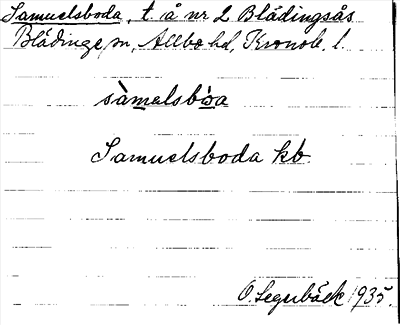 Samuelsboda, t. å nr 2 Blädingsås
Blädinge sn, Allbo hd, Kronob. l.
sàmelsbòa
Samuelsboda kb.
O. Segerbäck 1935.